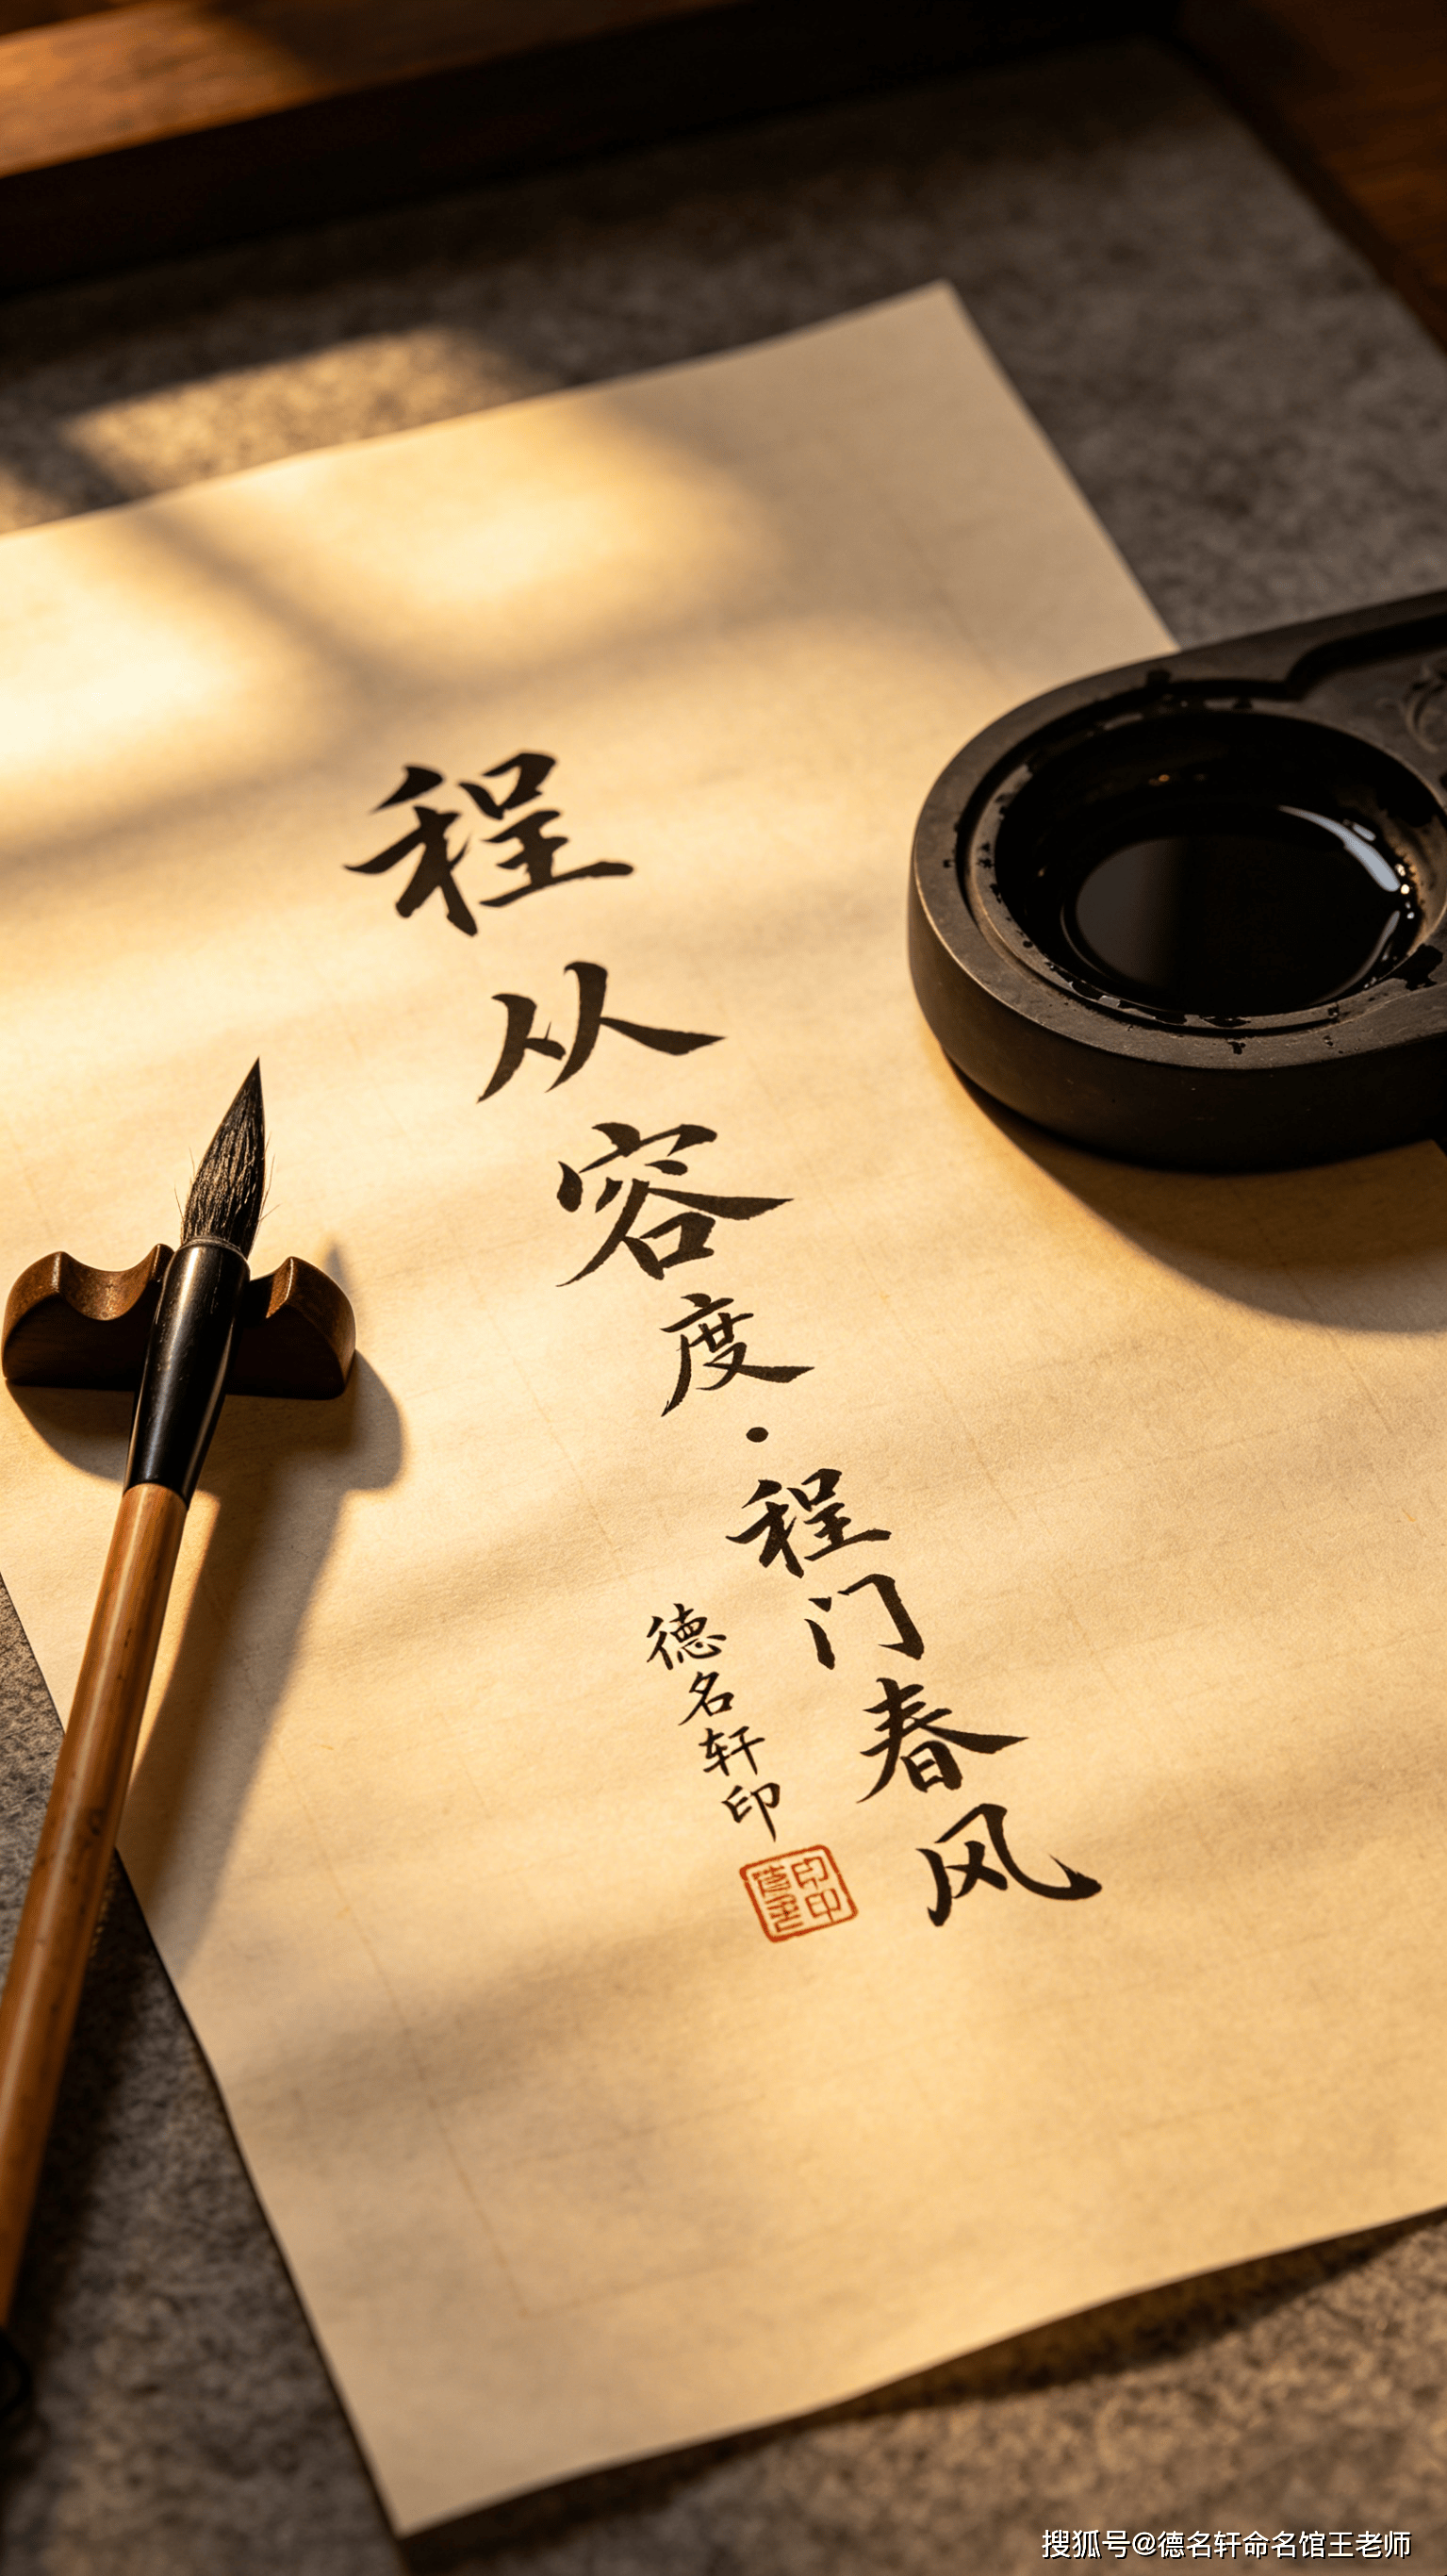 程从容度·程门春风
德名轩印
搜狐号@德名轩命名馆王老师